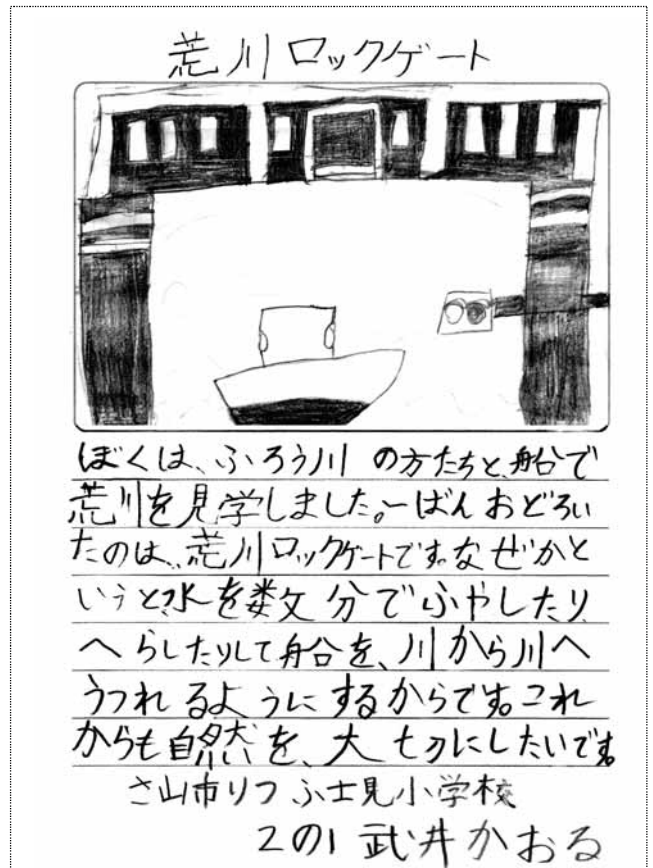 荒川ロックゲート
ぼくは、ふろう川の方たちと、船で
荒川を見学しました。一ばんおどろい
たのは、荒川ロックゲートです。なぜかと
いうと水を数分でふやしたり
へらしたりして船を、川から川へ
うつれるようにするからです。これ
からも自然を、大切にしたいです。
さ山市りつふ士見小学校
2の1武井かおる